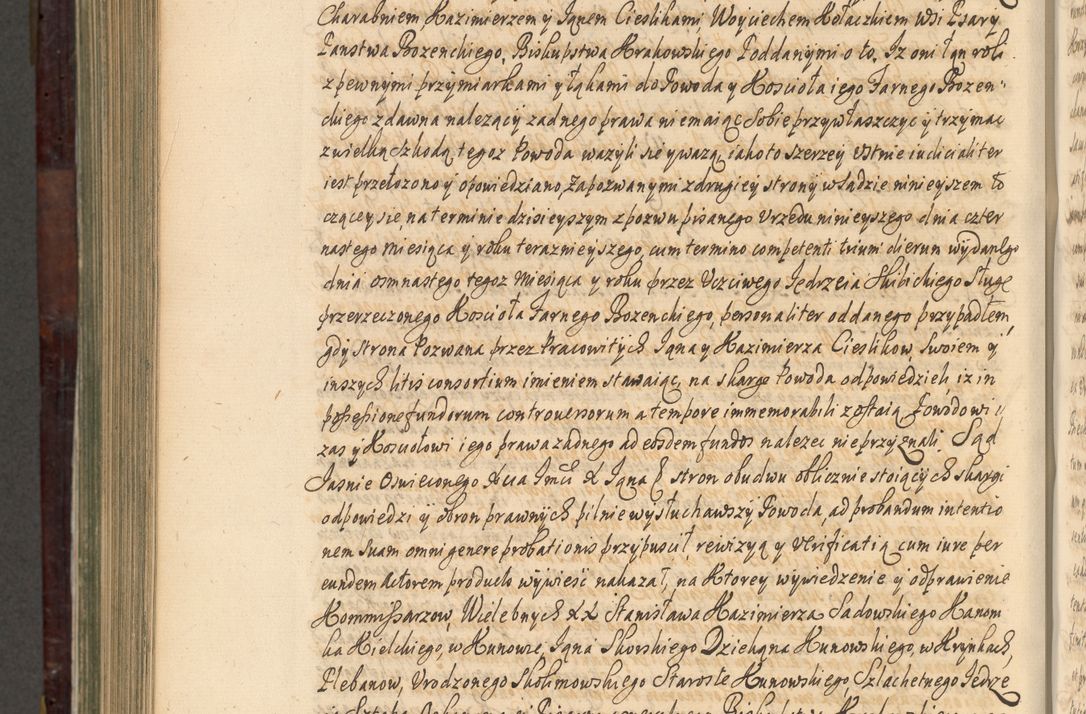 Charabniem, Kazimierzem y Janem Cieslikami, Woyciechem Kołaczkiem Wsi Psary
Panstwa Bozenckiego, Biskupstwa Krakowskiego Poddanymi o to, Iz oni łan roli
z pewnymi przymiarkami y łąkami do Powoda y Koscioła iego Farnego Bozen-
ckiego zdawna nalezący zadnego prawa niemaiąc sobie przywłaszczyc y trzymac
z wielką szkodą tegoz Powoda wazyli się y wazą, iako to szerzey Ustnie iudicialiter
iest przełozono y opowiedziano, Zapozwanymi z drugiey strony w Sądzie ninieyszem to
czącey się, na terminie dzisieyszym z pozwu pisanego Urzędu ninieyszego dnia czter
nastego Miesiąca y roku terazniejszego, cum termino competenti trium dierum wydanego
dnia osmnastego tegoz Miesiąca y roku przez Uczciwego Jędrzeia Skibickiego Sługę
przerzeczonego Koscioła Farnego Bozenckiego, personaliter oddanego przypadłem,
gdy strona Pozwana przez Pracowitych Jana y Kazimierza Cieslikow, Swoiem y
inszych litis consortium imieniem stawaiąc, na skargę Powoda odpowiedzieli, iz in
possessione fundorum controversorum a tempore immemorabili zostaią Powodowi
zas y Kosciołowi iego prawa zadnego ad eosdem fundos nalezec nie przyznali. Sąd
Jasnie Oswieconego Xcia Imci X Jgna stron obudwu oblicznie stoiących skargi
odpowiedzi y obron prawnych pilnie wysłuchawszy Powoda, ad probandum intentio
nem suam omni genere probationis przypuscił, rewizyą y Verificatią cum iure per
eundem Actorem producto wywiesc nakazał, na ktorey wywiedzenie y odprawienie
Kommissarzow, Wielebnych XX Stanisława Kazimierza Sadowskiego Kanoni
ka Kielckiego, w Kunowie, Jana Skorskiego Dziekana Kunowskiego, w Krynkach,
Plebanow, Urodzonego Skolimowskiego Starostę Kunowskiego, Szlachetnego Jędrze